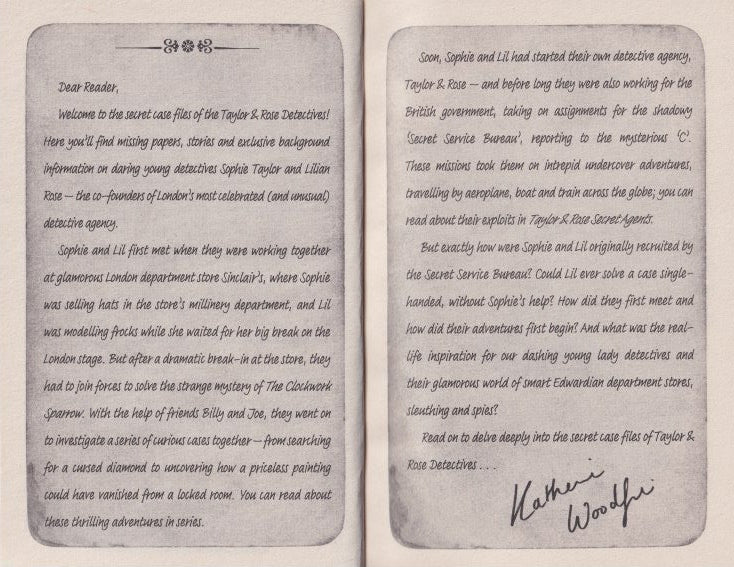 Dear Reader,
Welcome to the secret case files of the Taylor & Rose Detectives!
Here you'll find missing papers, stories and exclusive background
information on daring young detectives Sophie Taylor and Lilian
Rose – the co-founders of London's most celebrated (and unusual)
detective agency.
Sophie and Lil first met when they were working together
at glamorous London department store Sinclair's, where Sophie
was selling hats in the store's millinery department, and Lil
was modelling frocks while she waited for her big break on the
London stage. But after a dramatic break-in at the store, they
had to join forces to solve the strange mystery of The Clockwork
Sparrow. With the help of friends Billy and Joe, they went on
to investigate a series of curious cases together – from searching
for a cursed diamond to uncovering how a priceless painting
could have vanished from a locked room. You can read about
these thrilling adventures in series.
Soon, Sophie and Lil had started their own detective agency,
Taylor & Rose – and before long they were also working for the
British government, taking on assignments for the shadowy
'Secret Service Bureau', reporting to the mysterious 'C'.
These missions took them on intrepid undercover adventures,
travelling by aeroplane, boat and train across the globe; you can
read about their exploits in Taylor & Rose Secret Agents.
But exactly how were Sophie and Lil originally recruited by
the Secret Service Bureau? Could Lil ever solve a case single-
handed, without Sophie's help? How did they first meet and
how did their adventures first begin? And what was the real-
life inspiration for our dashing young lady detectives and
their glamorous world of smart Edwardian department stores,
sleuthing and spies?
Read on to delve deeply into the secret case files of Taylor &
Rose Detectives . . .